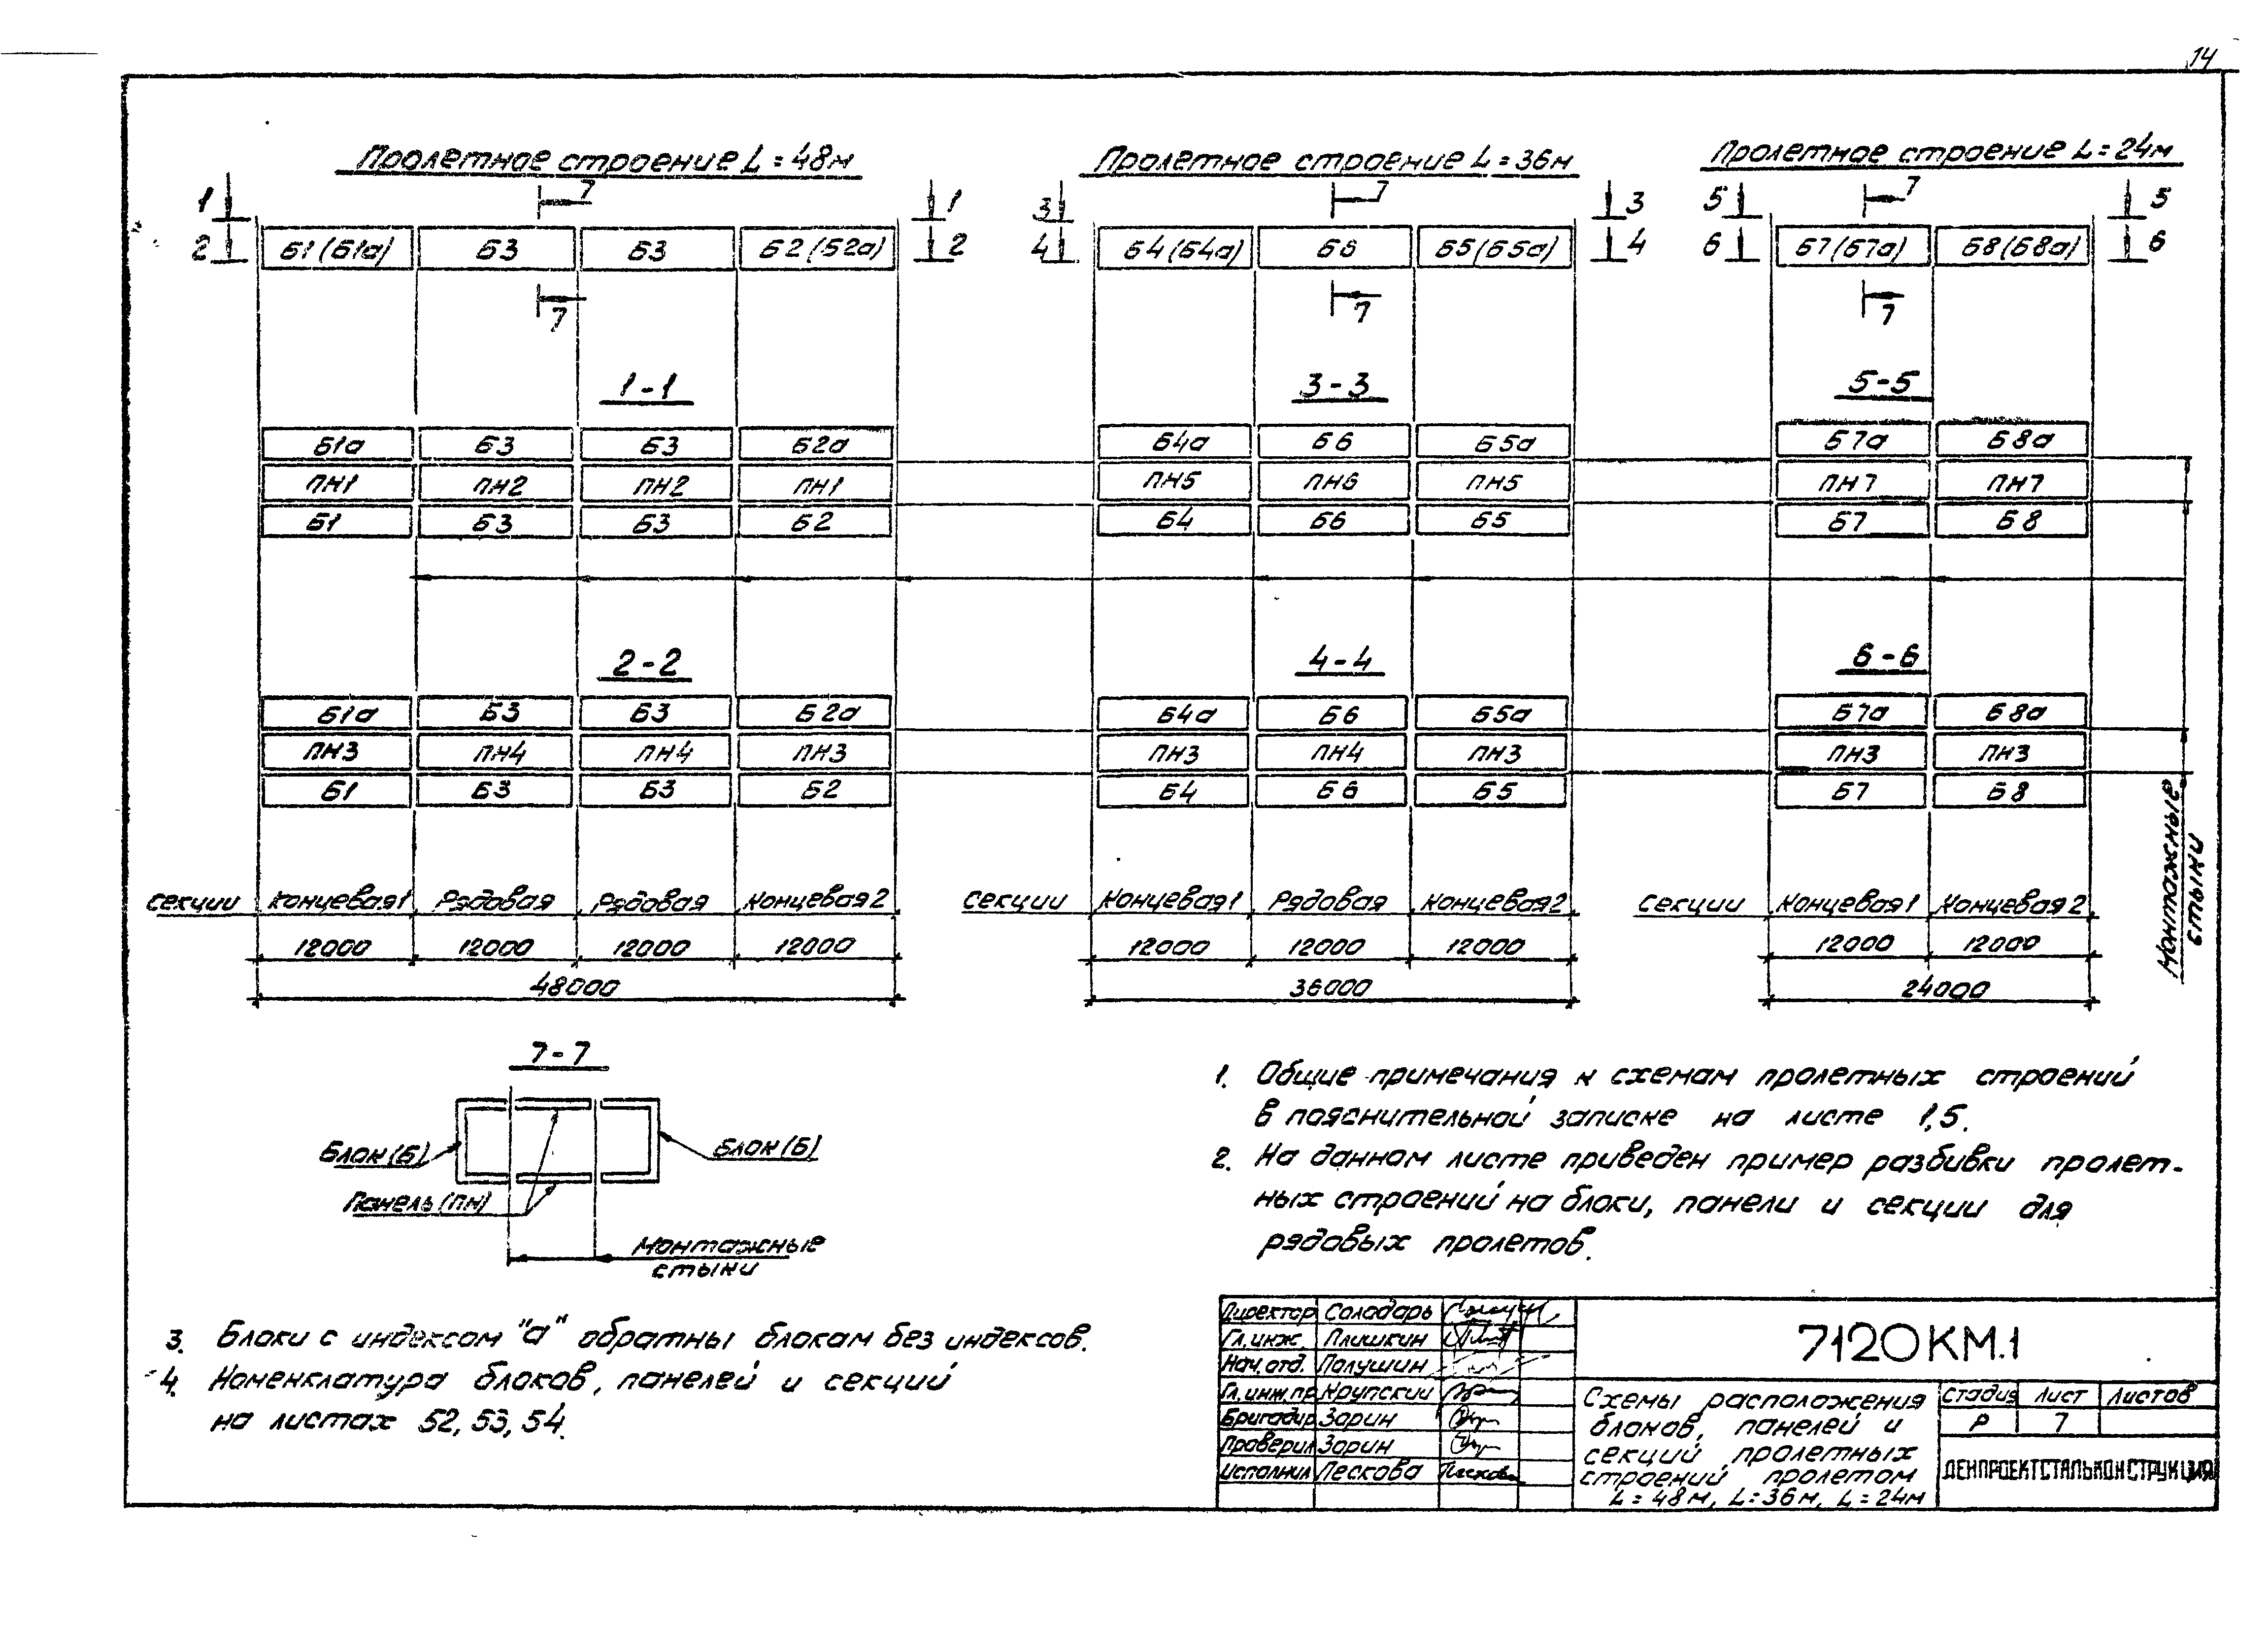 14
Пролетное строение L = 48м
Пролетное строение L = 36м
Пролетное строение L = 24м
1 7 1 3 7 3 5 7 5
2 Б1 (Б1а) Б3 Б3 Б2 (Б2а) 2
4 Б4 (Б4а) Б6 Б5 (Б5а) 4
6 Б7 (Б7а) Б8 (Б8а) 6
7 7 7
1-1 3-3 5-5
Б1а Б3 Б3 Б2а Б4а Б6 Б5а Б7а Б8а
ПН1 ПН2 ПН2 ПН1 ПН5 ПН6 ПН5 ПН7 ПН7
Б1 Б3 Б3 Б2 Б4 Б6 Б5 Б7 Б8
2-2 4-4 6-6
Б1а Б3 Б3 Б2а Б4а Б6 Б5а Б7а Б8а
ПН3 ПН4 ПН4 ПН3 ПН3 ПН4 ПН3 ПН3 ПН3
Б1 Б3 Б3 Б2 Б4 Б6 Б5 Б7 Б8
Монтажные
стыки
секции Концевая 1 Рядовая Рядовая Концевая 2
секции Концевая 1 Рядовая Концевая 2
секции Концевая 1 Концевая 2
12000 12000 12000 12000 12000 12000 12000 12000 12000
48000 36000 24000
7-7
Блок (Б) Блок (Б)
Панель (ПН)
Монтажные
стыки
1. Общие примечания к схемам пролетных строений
в пояснительной записке на листе 1,5.
2. На данном листе приведен пример разбивки пролет-
ных строений на блоки, панели и секции для
рядовых пролетов.
3. Блоки с индексом "а" обратны блокам без индексов.
4. Номенклатура блоков, панелей и секций
на листах 52, 53, 54.
Директор Солодарь
Гл. инж. Плишкин
Нач. отд. Полушин
Гл. инж. пр. Крупский
Бригадир Зорин
Проверил Зорин
Исполнил Пескова Пескова
7120КМ.1
Схемы расположения
блоков, панелей и
секций пролетных
строений пролетом
L = 48 м, L = 36 м, L = 24 м
Стадия Лист Листов
Р 7
ЛЕНПРОЕКТСТАЛЬКОНСТРУКЦИЯ